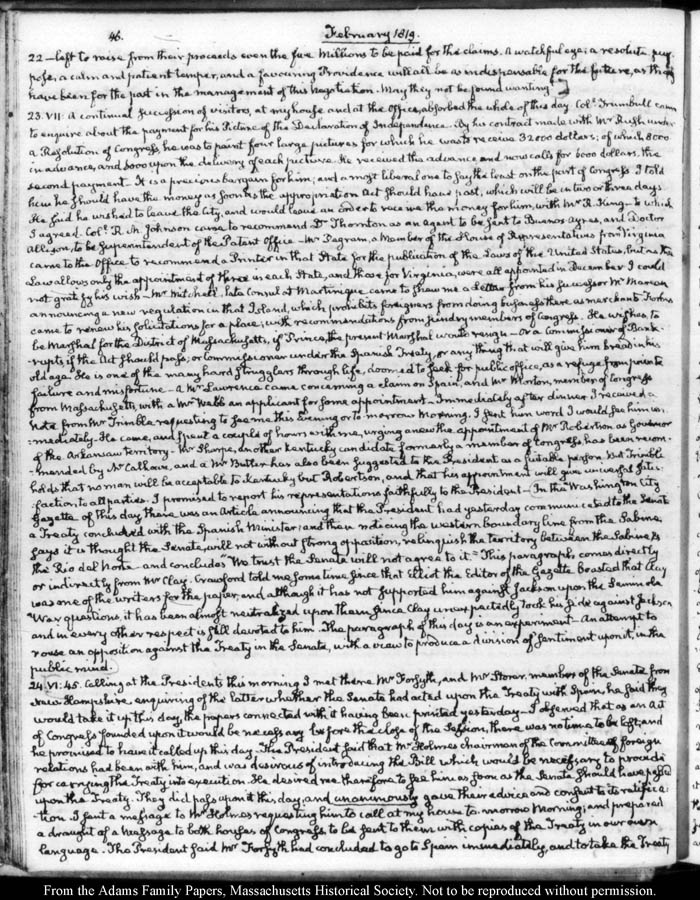 46.
February 1819.
22 — left to raise from their proceeds even the five Millions to be paid for the claims. A watchful eye; a resolute pur-
pose, a calm and patient temper, and a favouring Providence will all be as indispensable for the future, as they
have been for the past in the management of this Negotiation. May they not be found wanting!
23. VII. A continual succession of visitors, at my house and at the Office, absorbed the whole of this day. Coll. Trumbull came
to enquire about the payment for his Picture of the Declaration of Independence. By his contract made with Mr Rush under
a Resolution of Congress, he was to paint four large pictures for which he was to receive 32000 dollars; of which 8000
in advance, and 6000 upon the delivery of each picture. He received the advance, and now calls for 6000 dollars, the
second payment. It is a precious bargain for him; and a most liberal one to say the least on the part of Congress. I told
him he should have the money as soon as the appropriation Act should have past, which will be in two or three days.
He said he wished to leave the City, and would leave an order to receive the money for him, with Mr R. King — to which
I agreed. Coll. R. M. Johnson came to recommend Dr Thornton as an agent to be sent to Buenos Ayres, and Doctor
Allison, to be Superintendent of the Patent Office — Mr Pegram, a Member of the House of Representatives from Virginia
came to the Office to recommend a Printer in that State for the publication of the Laws of the United States, but as the
Law allows only the appointment of three in each State, and those for Virginia, were all appointed in December I could
not gratify his wish — Mr Mitchell, late Consul at Martinique came to shew me a Letter from his successor Mr
announcing a new regulation in that Island, which prohibits foreigners from doing business there as merchants.
came to renew his solicitations for a place; with recommendations from sundry members of Congress. He wishes to
be Marshal for the District of Massachusetts, if Prince, the present Marshal would resign — or a Commissioner of Bank-
rupts if the Act should pass; or Commissioner under the Spanish Treaty, or any thing that will give him bread in his
old age. He is one of the many hard strugglers through life, doomed to seek for public office, as a refuge from private
failure and misfortune — A Mr Lawrence came concerning a claim on Spain, and Mr Morton, member of Congress
from Massachusetts, with a Mr Webb an applicant for some appointment — Immediately after dinner I received a
Note from Mr Trimble requesting to see me this Evening or to morrow Morning. I sent him word I would see him im-
mediately. He came, and spent a couple of hours with me, urging anew the appointment of Mr Robertson as Governor
of the Arkansaw Territory. Mr Sharpe, another Kentucky candidate formerly a member of Congress has been recom-
mended by Mr Calhoun, and a Mr Butler has also been suggested to the President as a suitable person. But Trimble
holds that no man will be acceptable to Kentucky but Robertson, and that his appointment will give universal satis-
faction to all parties. I promised to report his representations faithfully to the President — In the Washington City
Gazette of this day there was an Article announcing that the President had yesterday communicated to the Senate
a Treaty concluded with the Spanish Minister; and then noticing the western boundary line from the Sabine,
says it is thought the Senate, will not without strong opposition, relinquish the territory between the Sabine &
the Rio del Norte — and concludes "We trust the Senate will not agree to it." This paragraph comes directly
or indirectly from Mr Clay. Crawford told me some time since that Elliot the Editor of the Gazette boasted that Clay
was one of the writers for the paper, and although it has not supported him against Jackson upon the Seminole
War questions, it has been almost neutralized upon them, since Clay unexpectedly took his side against Jackson
and in every other respect is still devoted to him. The paragraph of this day is an experiment — An attempt to
rouse an opposition against the Treaty in the Senate, with a view to produce a division of sentiment upon it, in the
public mind.
24. VI:45. Calling at the President's this morning I met there Mr Forsyth, and Mr Storer, member of the Senate from
New Hampshire, enquiring of the latter whether the Senate had acted upon the Treaty with Spain, he said they
would take it up this day, the papers connected with it having been printed yesterday — I observed that as an Act
of Congress founded upon it would be necessary before the close of the Session, there was no time to be lost; and
he promised to have it called up this day. The President said that Mr Holmes chairman of the Committee of foreign
relations had been with him, and was desirous of introducing the Bill which would be necessary to provide
for carrying the Treaty into execution. He desired me therefore to see him as soon as the Senate should have passed
upon the Treaty. They did pass upon it this day, and unanimously gave their advice and consent to its ratifica-
tion. I sent a message to Mr Holmes requesting him to call at my house to-morrow Morning; and prepared
a draught of a Message to both houses of Congress to be sent to them with copies of the Treaty in our own
language. The President said Mr Forsyth had concluded to go to Spain immediately, and to take the Treaty
From the Adams Family Papers, Massachusetts Historical Society. Not to be reproduced without permission.